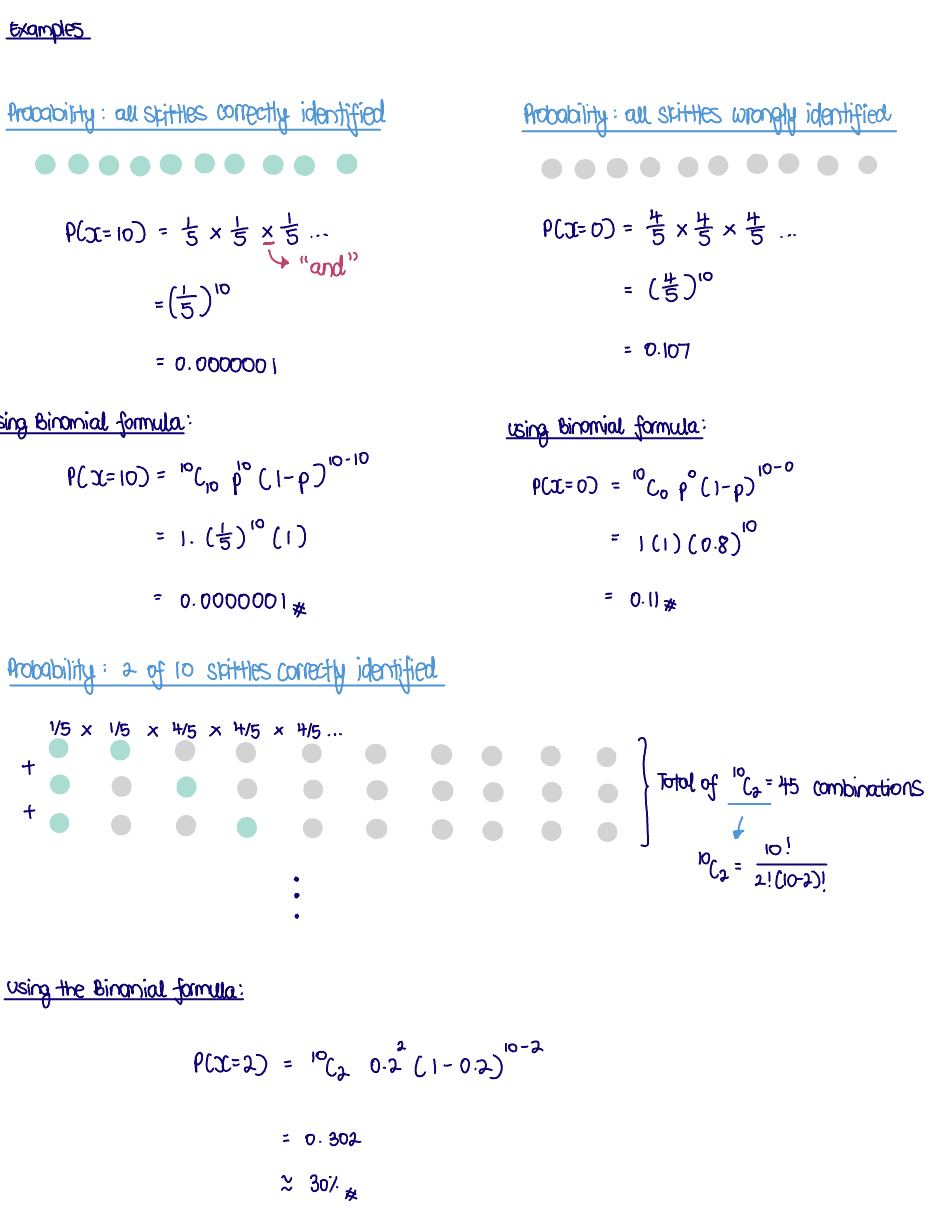 Examples
Probability: all skittles correctly identified
P(x=10) = 1/5 × 1/5 × 1/5 ...
"and"
= (1/5)^10
= 0.0000001
sing Binomial formula:
P(x=10) = ¹⁰C₁₀ p^10 (1-p)^10-10
= 1. (1/5)^10 (1)
= 0.0000001 #
Probability: all skittles wrongly identified
P(x=0) = 4/5 × 4/5 × 4/5 ...
= (4/5)^10
= 0.107
using Binomial formula:
P(x=0) = ¹⁰C₀ p^0 (1-p)^10-0
= 1(1)(0.8)^10
= 0.11 #
Probability: 2 of 10 skittles correctly identified
1/5 × 1/5 × 4/5 × 4/5 × 4/5 ...
+
+
Total of ¹⁰C₂ = 45 combinations
¹⁰C₂ = 10! / 2!(10-2)!
using the Binomial formula:
P(x=2) = ¹⁰C₂ 0.2^2 (1-0.2)^10-2
= 0.302
≈ 30% #